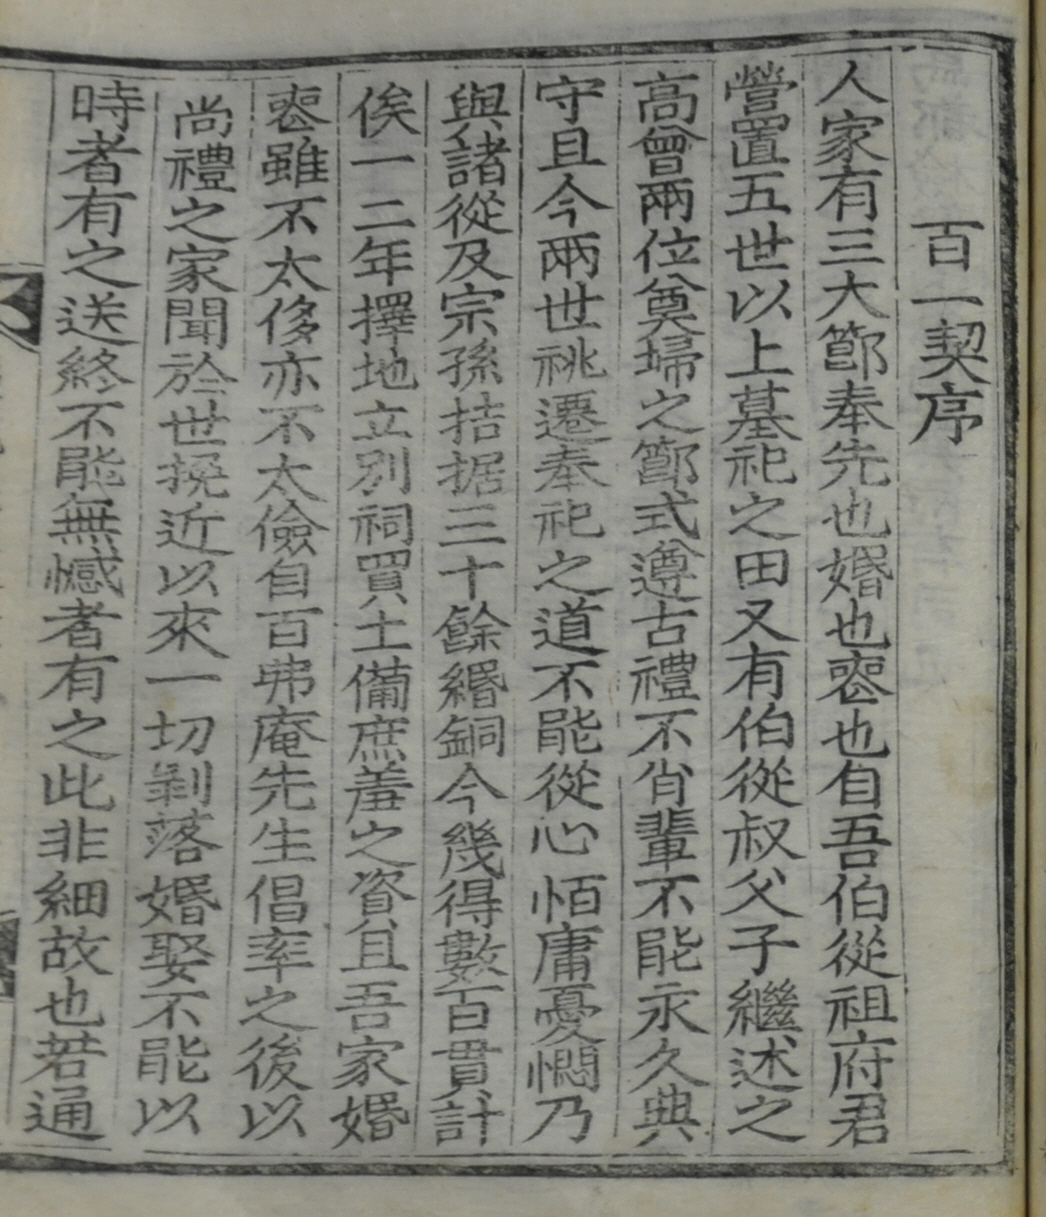 百一契序
人家有三大節奉先也婚也喪也自吾伯從祖府君
營置五世以上墓祀之田又有伯從叔父子繼述之
高曾兩位奠埽之節式遵古禮不肖輩不能永久典
守且今兩世祧遷奉祀之道不能從心恒庸憂憫乃
與諸從及宗孫拮据三十餘緡銅今幾得數百貫計
俟一二年擇地立別祠買土備庶羞之資且吾家婚
喪雖不太侈亦不太儉自百弗庵先生倡率之後以
尚禮之家聞於世挽近以來一切剝落婚娶不能以
時者有之送終不能無憾者有之此非細故也若通